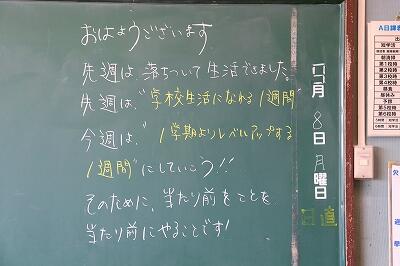 おはようございます
先週は落ちついて生活できました。
先週は、"学校生活になれる1週間"
今週は、"1学期よりレベルアップする
1週間"にしていこう!!
そのために、当たり前をことを
当たり前にやることです!
月 8日 月曜日
日直
A日課表
短学活
第1校時
第2校時
第3校時
第4校時
昼食
昼休み
予鈴
第5校時
第6校時